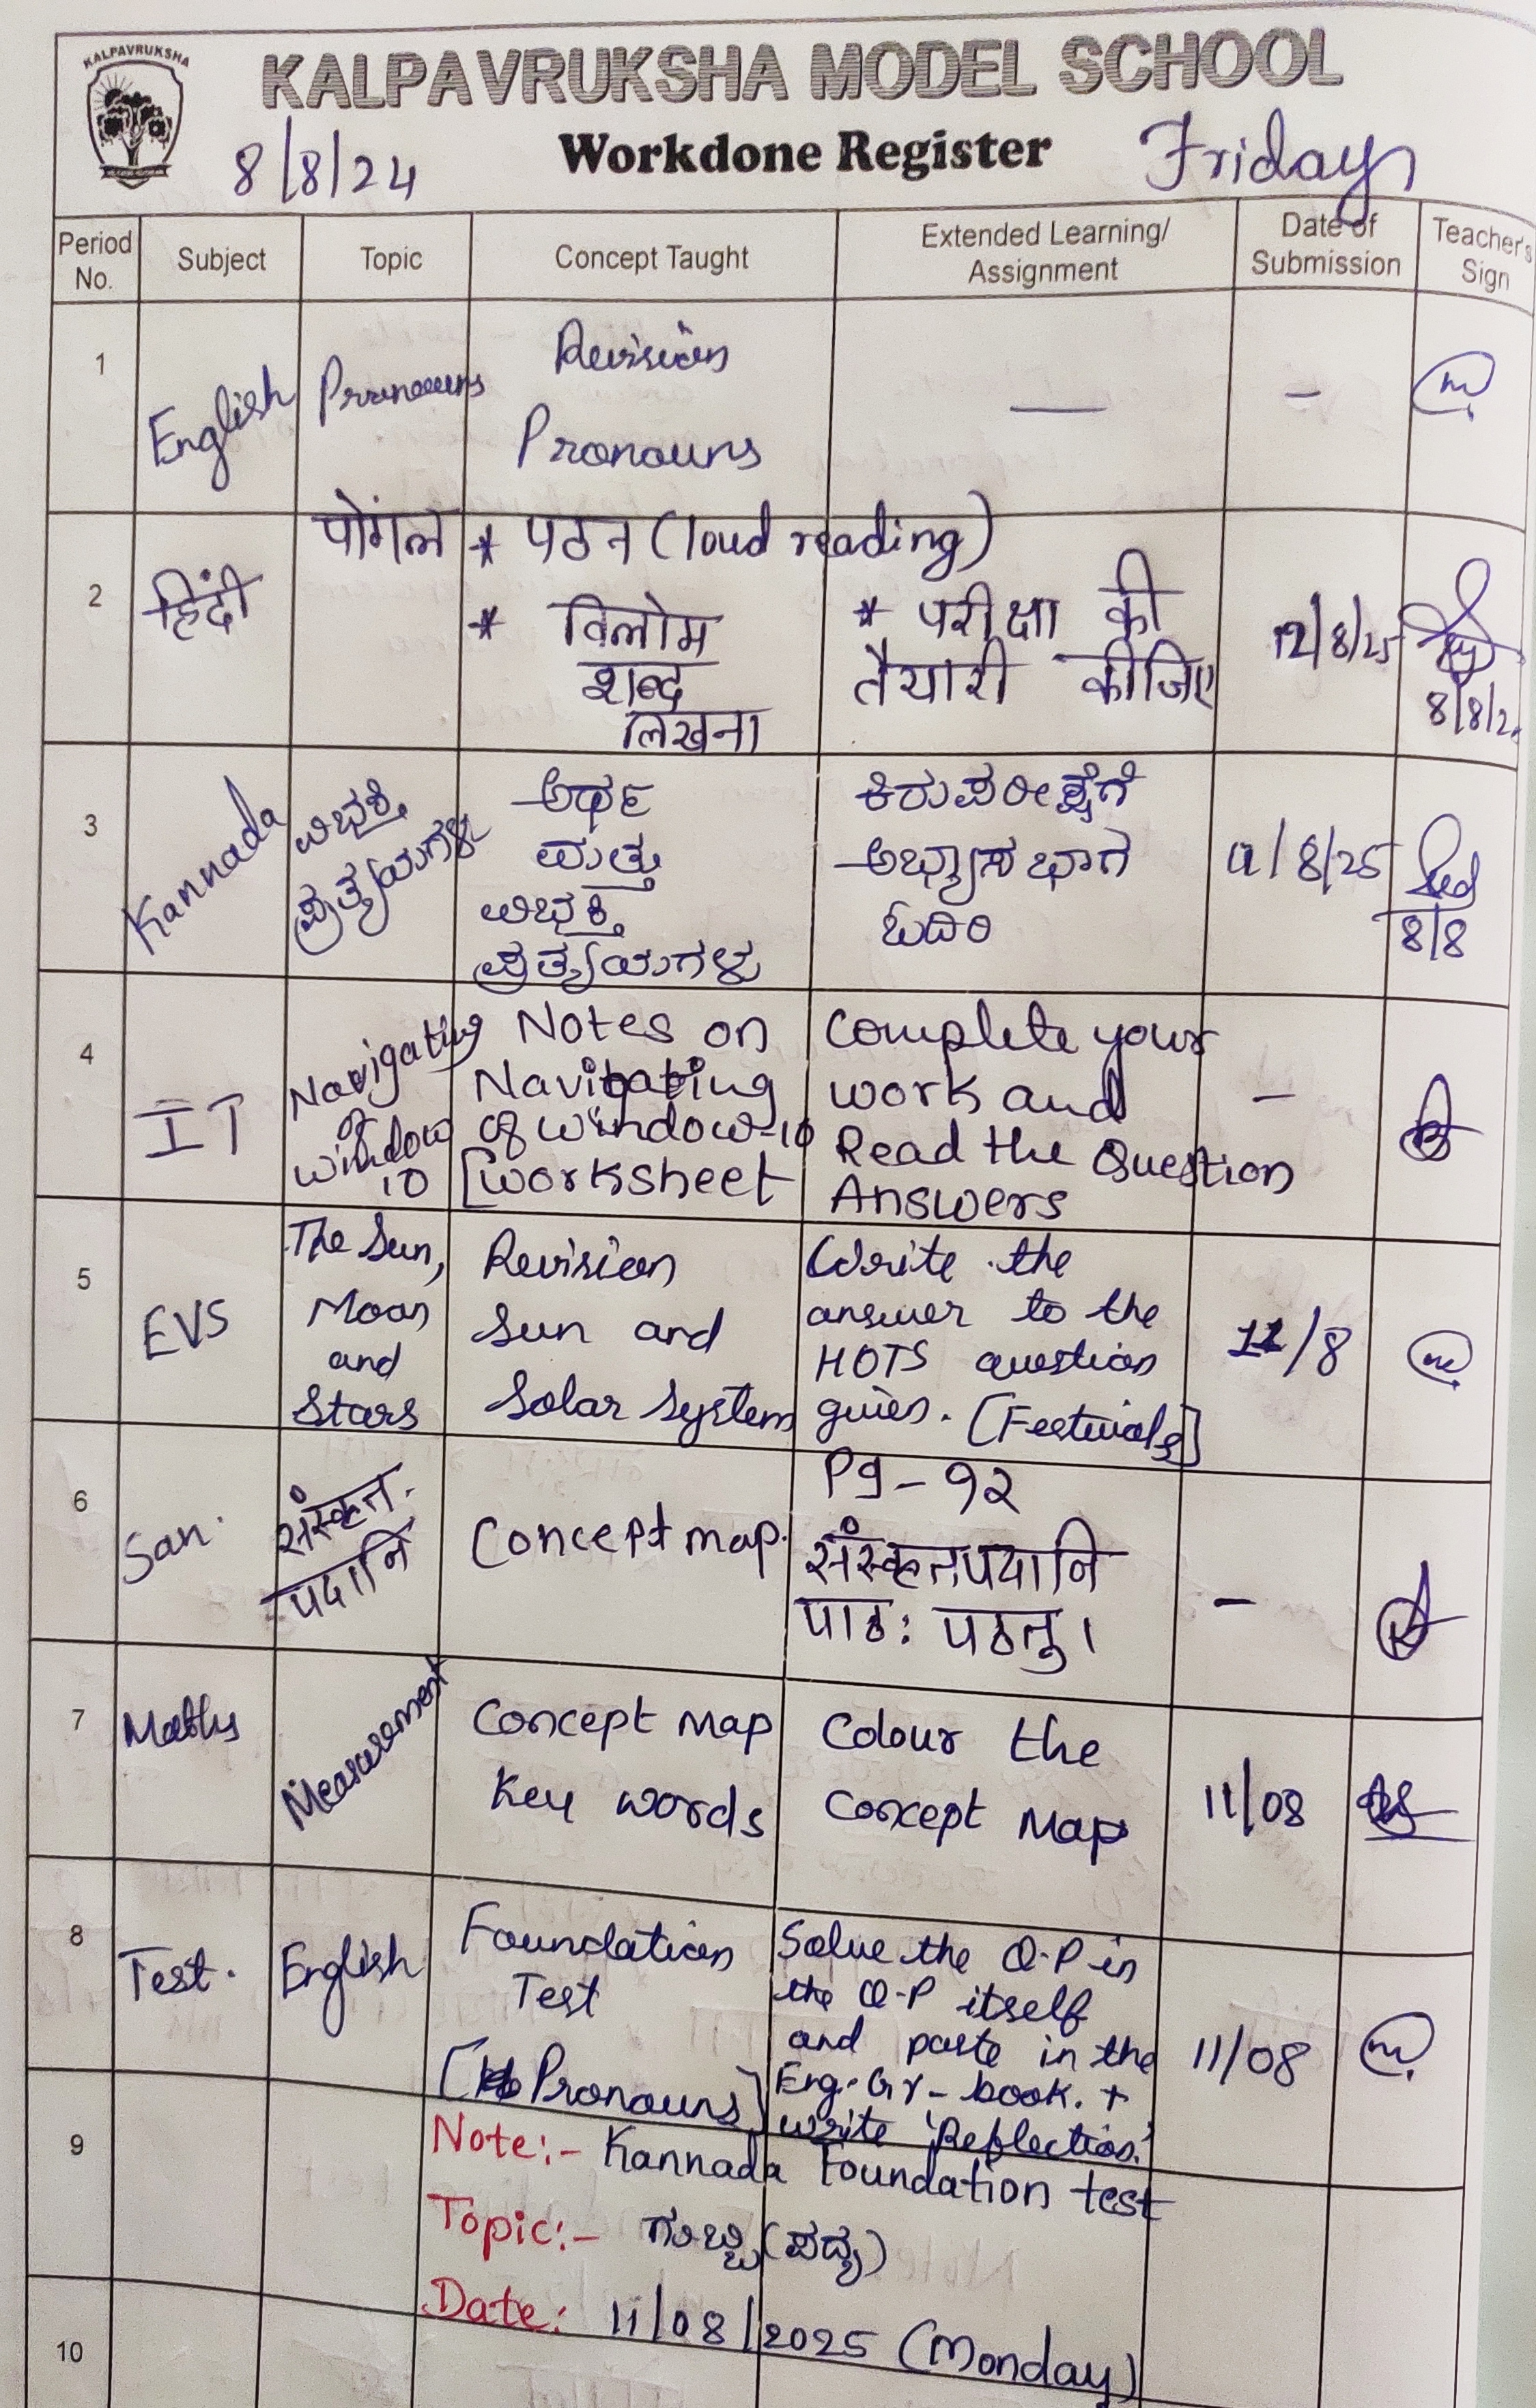 KALPAVRUKSHA
KALPAVRUKSHA MODEL SCHOOL
8/8/24
Workdone Register
Friday
Period No.
Subject
Topic
Concept Taught
Extended Learning/
Assignment
Date of
Submission
Teacher's
Sign
1
English
Pronouns
Revision
Pronouns
—
–
2
हिंदी
पोंगल
* पठन (loud reading)
* विलोम
शब्द
लिखना
* परीक्षा की
तैयारी कीजिए
12/8/25
8/8/2
3
Kannada
ವಿಭಕ್ತಿ
ಪ್ರತ್ಯಯಗಳು
ಅರ್ಥ
ಮತ್ತು
ವಿಭಕ್ತಿ
ಪ್ರತ್ಯಯಗಳು
ಕಿರುಪರೀಕ್ಷೆಗೆ
ಅಭ್ಯಾಸ ಭಾಗ
ಓದಿರಿ
11/8/25
8/8
4
IT
Navigating
of
Window
10
Notes on
Navigating
of window-10
[Worksheet
Complete your
work and
Read the Question
Answers
–
5
EVS
The Sun,
Moon
and
Stars
Revision
Sun and
Solar System
Write the
answer to the
HOTS question
given. [Festivals]
11/8
6
San.
संस्कृत
पदानि
Concept map.
Pg - 92
संस्कृतपदानि
पाठः पठतु।
–
7
Maths
Measurement
Concept Map
Key words
Colour the
Concept Map
11/08
8
Test.
English
Foundation
Test
[Pronouns]
Solve the Q.P in
the Q.P itself
and paste in the
Eng. Gr- book. +
write 'Reflection.'
11/08
9
Note:- Kannada Foundation test
Topic:- ಗುಬ್ಬಿ (ಪದ್ಯ)
Date: 11/08/2025 (Monday)
10